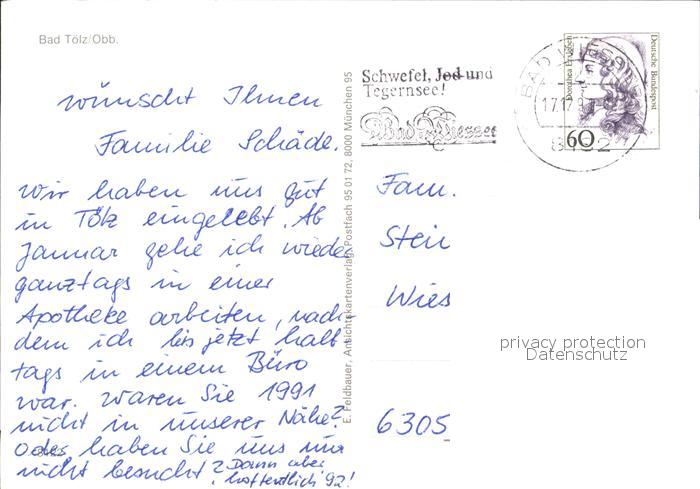 Bad Tölz/Obb.
wünscht Ihnen
Familie Schäde.
Wir haben uns gut
in Tölz eingelebt. Ab
Januar gehe ich wieder
ganztags in einer
Apotheke arbeiten, nach
dem ich bis jetzt halb
tags in einem Büro
war. Waren Sie 1991
nicht in unserer Nähe?
Oder haben Sie uns nur
nicht besucht? Dann aber
hoffentlich 92!
E. Feldbauer, Ansichtskartenverlag, Postfach 95 01 72, 8000 München 95
Schwefel, Jod und
Tegernsee!
Bad Wiessee
BAD WIESSEE
17.12.91
8182
Dorothea Erxleben
Deutsche Bundespost
60
Fam.
Stein
Wies
6305
privacy protection
Datenschutz